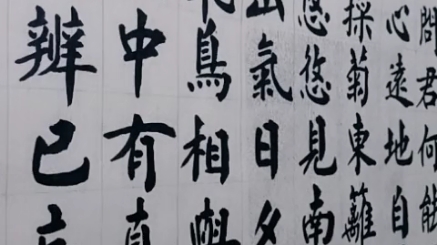 問君何能
心遠地自
採菊東籬
悠悠見南
山氣日夕
鳥相與
中有真
辨已